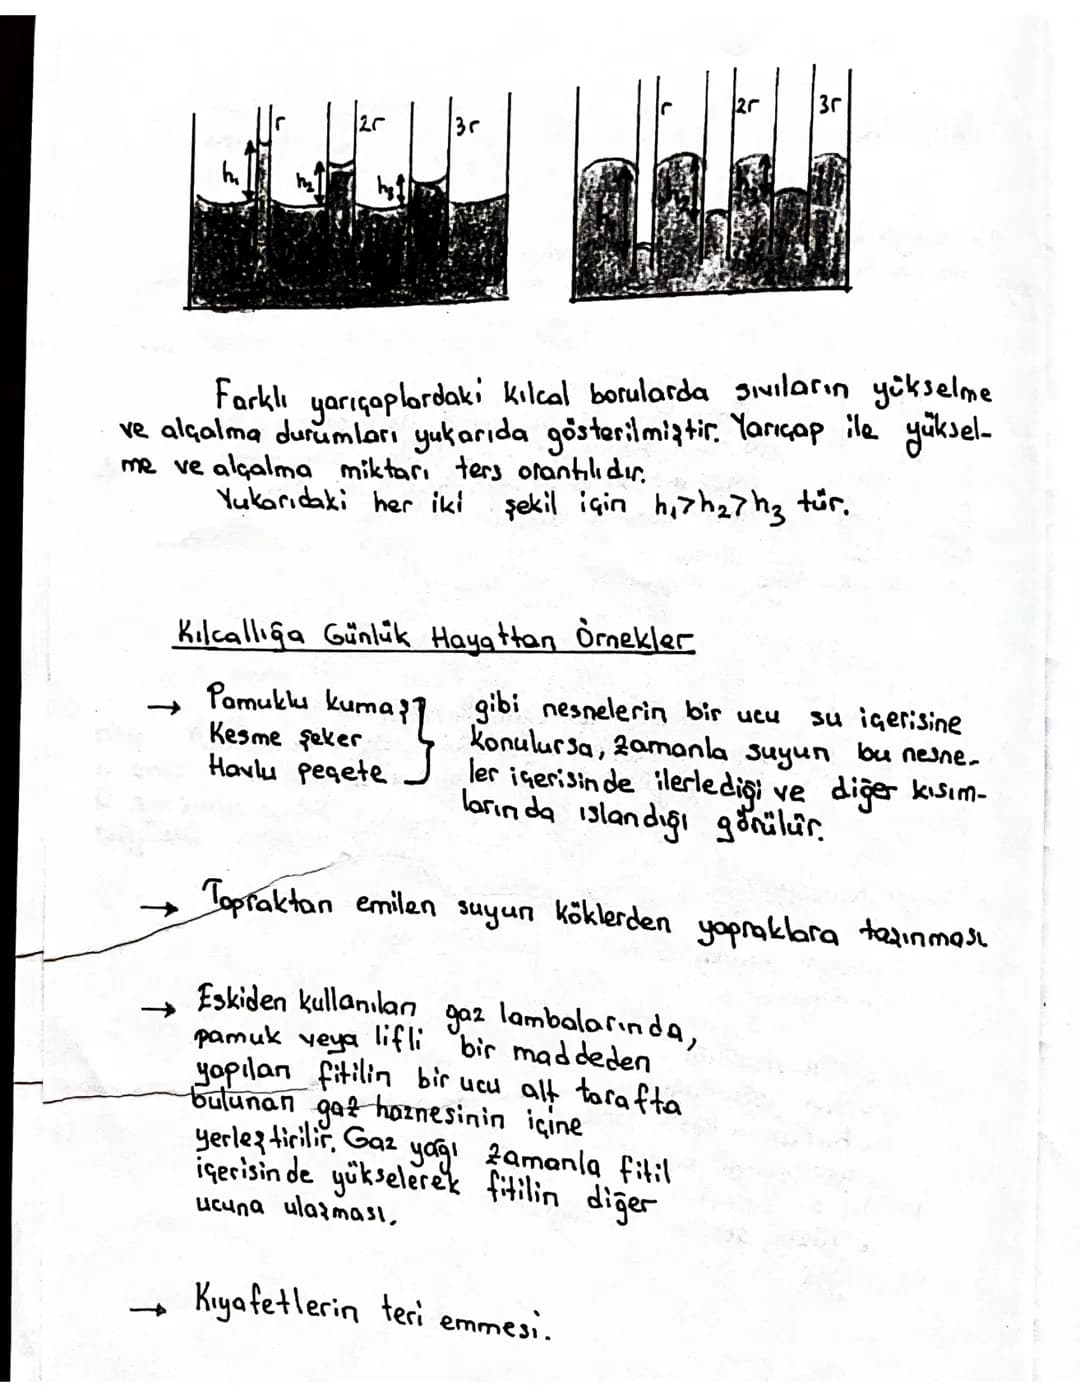 r 2r 3r r 2r 3r
h₁ h₂ h₃
Farklı yarıçaplardaki kılcal borularda sıvıların yükselme
ve alçalma durumları yukarıda gösterilmiştir. Yarıçap ile yüksel-
me ve alçalma miktarı ters orantılıdır.
Yukarıdaki her iki şekil için h₁>h₂>h₃ tür.
Kılcallığa Günlük Hayattan Örnekler
→ Pamuklu kumaş } gibi nesnelerin bir ucu su içerisine
Kesme şeker konulursa, zamanla suyun bu nesne-
Havlu peçete ler içerisinde ilerlediği ve diğer kısım-
larında ıslandığı görülür.
→ Topraktan emilen suyun köklerden yapraklara taşınması
→ Eskiden kullanılan gaz lambalarında,
pamuk veya lifli bir maddeden
yapılan fitilin bir ucu alt tarafta
bulunan gaz haznesinin içine
yerleştirilir. Gaz yağı zamanla fitil
içerisinde yükselerek fitilin diğer
ucuna ulaşması.
→ Kıyafetlerin teri emmesi.